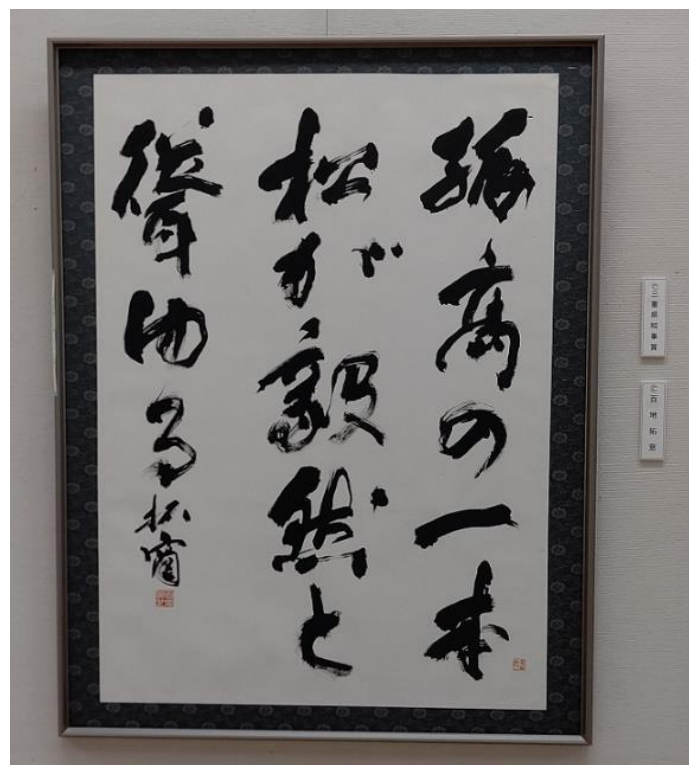 孤高の一本
松が毅然と
聳ゆる 拓窗
◎三重県知事賞
◎百地拓窗